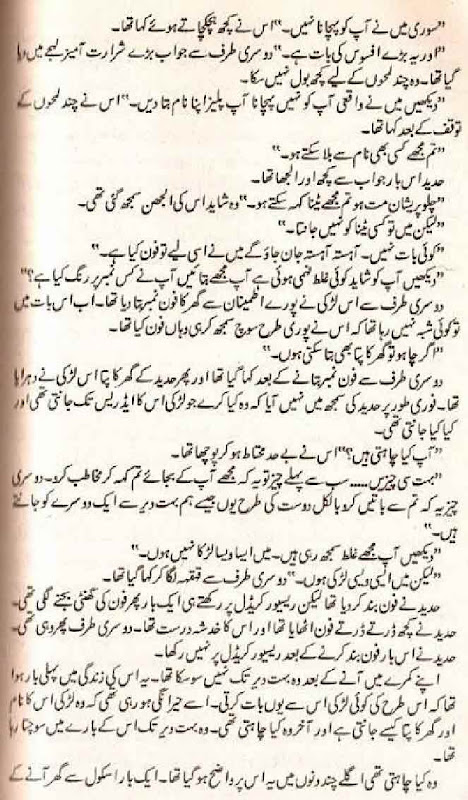 ”سوری میں نے آپ کو پہچانا نہیں۔“ اس نے کچھ ہچکچاتے ہوئے کہا تھا۔
”اور یہ بڑے افسوس کی بات ہے۔“ دوسری طرف سے جواب بڑے شرارت آمیز لہجے میں دیا
گیا تھا۔ وہ چند لمحوں کے لیے کچھ بول نہیں سکا۔
”دیکھیں میں نے واقعی آپ کو نہیں پہچانا آپ پلیز اپنا نام بتا دیں۔“ اس نے چند لمحوں کے
توقف کے بعد کہا تھا۔
”تم مجھے کسی بھی نام سے بلا سکتے ہو۔“
حدید اس بار جواب سے کچھ اور الجھا تھا۔
”چلو پریشان مت ہو تم مجھے ٹینا کہہ سکتے ہو۔“ وہ شاید اس کی الجھن سمجھ گئی تھی۔
”لیکن میں تو کسی ٹینا کو نہیں جانتا۔“
”کوئی بات نہیں۔ آہستہ آہستہ جان جاؤ گے میں نے اسی لیے تو فون کیا ہے۔“
”دیکھیں آپ کو شاید کوئی غلط فہمی ہوئی ہے آپ مجھے بتائیں آپ نے کس نمبر پر رنگ کیا ہے؟“
دوسری طرف سے اس لڑکی نے پورے اطمینان سے گھر کا فون نمبر بتا دیا تھا۔ اب اس بات میں
تو کوئی شبہ نہیں رہا تھا کہ اس نے پوری طرح سوچ سمجھ کر ہی وہاں فون کیا تھا۔
”اگر چاہو تو گھر کا پتا بھی بتا سکتی ہوں۔“
دوسری طرف سے فون نمبر بتانے کے بعد کہا گیا تھا اور پھر حدید کے گھر کا پتا اس لڑکی نے دہرایا
تھا۔ فوری طور پر حدید کی سمجھ میں نہیں آیا کہ وہ کیا کرے جو لڑکی اس کا ایڈریس تک جانتی تھی اور
کیا کیا جانتی تھی۔
”آپ کیا چاہتی ہیں؟“ اس نے بے حد محتاط ہو کر پوچھا تھا۔
”بہت سی چیزیں..... سب سے پہلے چیز تو یہ کہ مجھے آپ کے بجائے تم کہہ کر مخاطب کرو۔ دوسری
چیز یہ کہ تم سے باتیں کرو بالکل دوست کی طرح یوں جیسے ہم بہت دیر سے ایک دوسرے کو جانتے
ہیں۔“
”دیکھیں آپ مجھے غلط سمجھ رہی ہیں۔ میں ایسا ویسا لڑکا نہیں ہوں۔“
”لیکن میں ایسی ویسی لڑکی ہوں۔“ دوسری طرف سے قہقہہ لگا کر کہا گیا تھا۔
حدید نے فون بند کر دیا تھا لیکن ریسیور کریڈل پر رکھتے ہی ایک بار پھر فون کی گھنٹی بجنے لگی تھی۔
حدید نے کچھ ڈرتے ڈرتے فون اٹھایا تھا اور اس کا خدشہ درست تھا۔ دوسری طرف پھر وہی تھی۔
حدید نے اس بار فون بند کرنے کے بعد ریسیور کریڈل پر نہیں رکھا۔
اپنے کمرے میں آنے کے بعد وہ بہت دیر تک نہیں سو سکا تھا۔ یہ اس کی زندگی میں پہلی بار ہوا
تھا کہ اس طرح کی کوئی لڑکی اس سے یوں بات کرتی۔ اسے حیرانگی ہو رہی تھی کہ وہ لڑکی اس کا نام
اور گھر کا پتا کیسے جانتی ہے اور آخر وہ کیا چاہتی تھی۔ وہ بہت دیر تک اس کے بارے میں سوچتا رہا
تھا۔
وہ کیا چاہتی تھی اگلے چند دنوں میں یہ اس پر واضح ہو گیا تھا۔ ایک بار اسکول سے گھر آنے کے